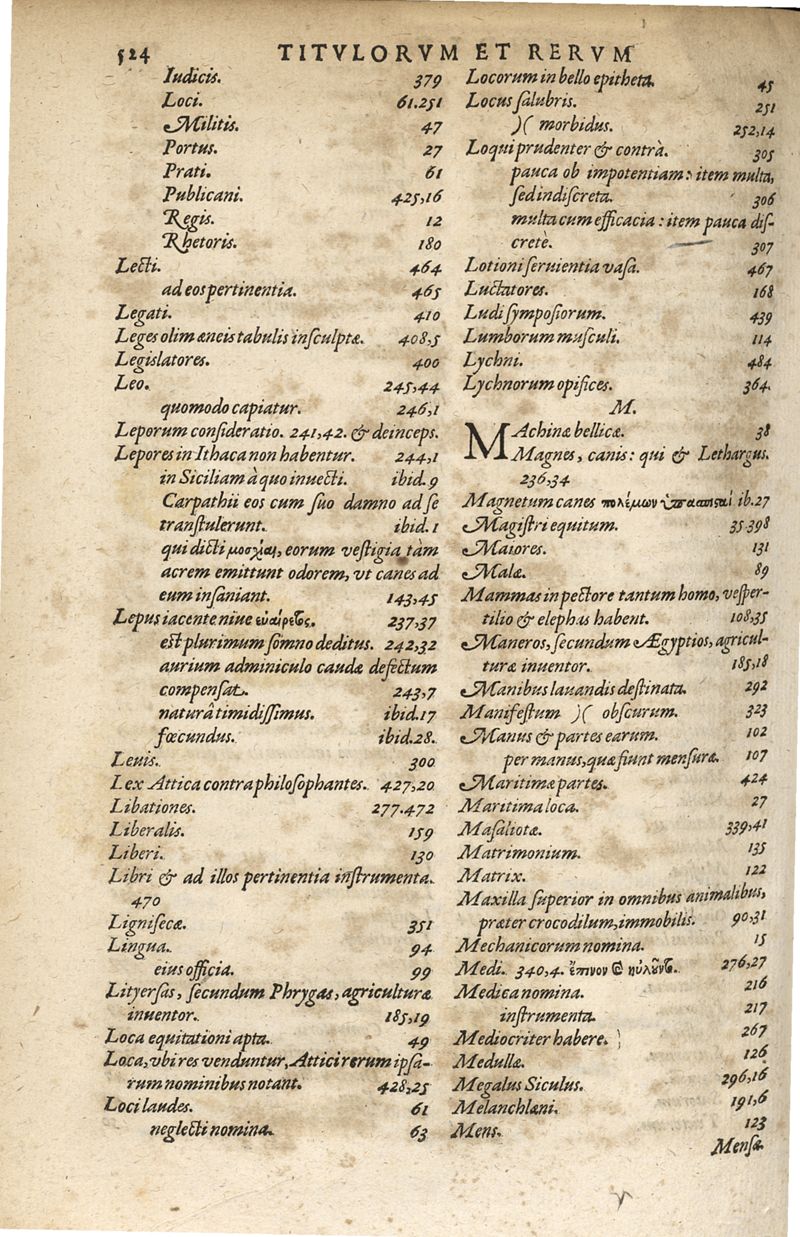 524 TITVLORVM ET RERVM
Iudicis. 379
Loci. 61.251
Militis. 47
Portus. 27
Prati. 61
Publicani. 425,16
Regis. 12
Rhetoris. 180
Lecti. 464
ad eos pertinentia. 465
Legati. 410
Leges olim æneis tabulis inſculptæ. 408,5
Legislatores. 400
Leo. 245,44
quomodo capiatur. 246,1
Leporum conſideratio. 241,42. & deinceps.
Lepores in Ithaca non habentur. 244,1
in Siciliam à quo inuecti. ibid.9
Carpathii eos cum ſuo damno ad ſe
tranſtulerunt. ibid.1
qui dicti μοσχίαι, eorum veſtigia tàm
acrem emittunt odorem, vt canes ad
eum inſaniant. 143,45
Lepus iacente niue εὐαίρετος. 237,37
eſt plurimum ſomno deditus. 242,32
aurium adminiculo caudæ defectum
compenſat. 243,7
naturâ timidiſſimus. ibid.17
fœcundus. ibid.28.
Leuis. 300
Lex Attica contra philoſophantes. 427,20
Libationes. 277.472
Liberalis. 159
Liberi. 130
Libri & ad illos pertinentia inſtrumenta.
470
Ligniſecæ. 351
Lingua. 94
eius officia. 99
Lityerſas, ſecundum Phrygas, agriculturæ
inuentor. 185,19
Loca equitationi apta. 49
Loca, vbi res venduntur, Attici rerum ipſa-
rum nominibus notant. 428,25
Loci laudes. 61
neglecti nomina. 63
Locorum in bello epitheta. 45
Locus ſalubris. 251
)( morbidus. 252,14
Loqui prudenter & contrà. 305
pauca ob impotentiam: item multa,
ſed indiſcreta. 306
multa cum efficacia: item pauca diſ-
cretè. 307
Lotioni ſeruientia vaſa. 467
Luctatores. 168
Ludi ſympoſiorum. 439
Lumborum muſculi. 114
Lychni. 484
Lychnorum opifices. 364.
M.
MAchinæ bellicæ. 38
Magnes, canis: qui & Lethargus.
236,34
Magnetum canes πολέμων ὑπασπισταί ib.27
Magiſtri equitum. 35.398
Maiores. 131
Malæ. 89
Mammas in pectore tantum homo, veſper-
tilio & elephas habent. 108,35
Maneros, ſecundum Ægyptios, agricul-
turæ inuentor. 185,18
Manibus lauandis deſtinata. 292
Manifeſtum )( obſcurum. 323
Manus & partes earum. 102
per manus, quæ fiunt menſuræ. 107
Maritimæ partes. 424
Maritima loca. 27
Maſaliotæ. 339,41
Matrimonium. 135
Matrix. 122
Maxilla ſuperior in omnibus animalibus,
præter crocodilum, immobilis. 90,31
Mechanicorum nomina. 15
Medi. 340,4. 276,27
Medica nomina. 216
inſtrumenta. 217
Mediocriter habere. 267
Medullæ. 126
Megalus Siculus. 296,16
Melanchlæni. 191,6
Mens. 123
Menſæ.